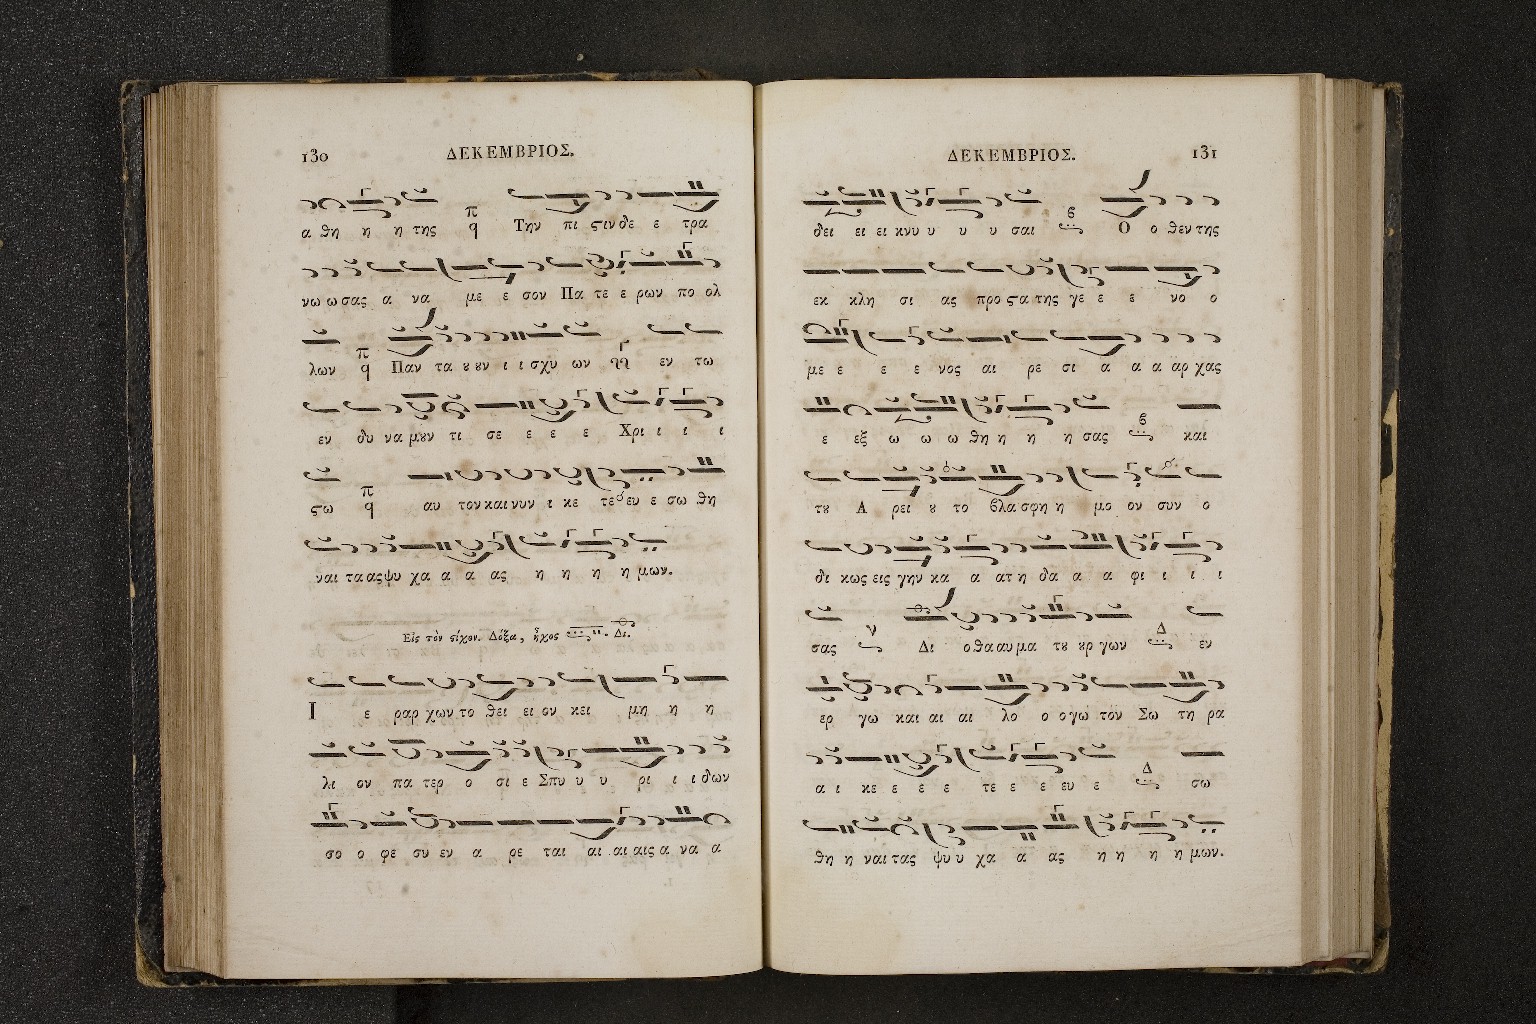 130 ΔΕΚΕΜΒΡΙΟΣ.
α θη η η της π q Την πι ϛιν δε ε τρα
νω ω σας α να με ε σον Πα τε ε ρων πο ολ
λων π q Παν τα ȣ ȣν ι ι σχυ ων εν τω
εν δυ να μȣν τι σε ε ε ε Χρι ι ι ι
ϛω π q αυ τον και νυν ι κε τε ευ ε σω θη
ναι τα ας ψυ χα α α ας η η η η μων.
Εἰς τὸν ϛίχον. Δόξα, ἦχος Δι.
Ι ε ραρ χων το θει ει ον κει μη η η
λι ον πα τερ ο σι ε Σπυ υ υ ρι ι ι δων
σο ο φε συ εν α ρε ται αι αι αις α να α
ΔΕΚΕΜΒΡΙΟΣ. 131
δει ει ει κνυ υ υ υ σαι ϐ Ο ο θεν της
εκ κλη σι ας προ ϛα της γε ε ε νο ο
με ε ε ε νος αι ρε σι α α α αρ χας
ε εξ ω ω ω θη η η η σας ϐ και
τȣ Α ρει ȣ το ϐλα σφη η μο ον συν ο
δι κως εις γην κα α ατ η δα α α φι ι ι ι
σας ν Δι ο θα αυ μα τȣ ȣρ γων Δ εν
ερ γω και αι αι λο ο ο γω τον Σω τη ρα
α ι κε ε ε ε τε ε ε ευ ε Δ σω
θη η ναι τας ψυ υ χα α ας η η η η μων.